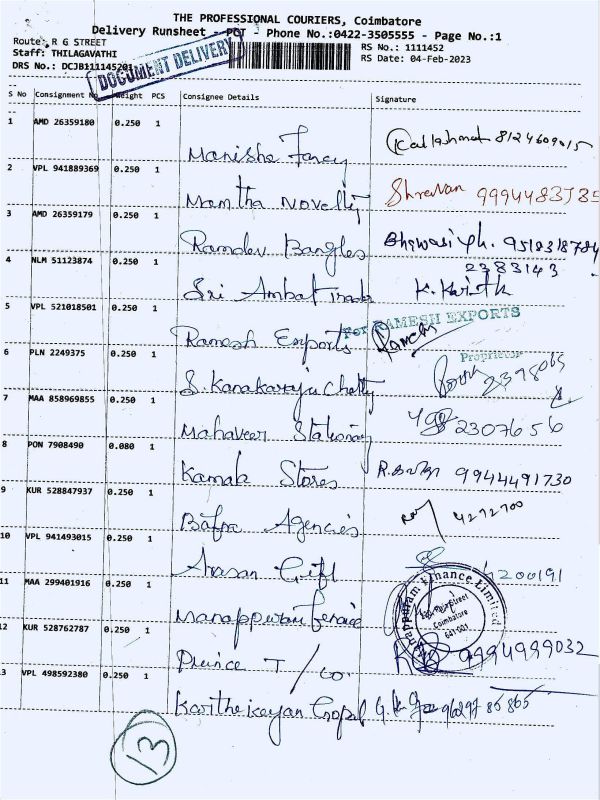 THE PROFESSIONAL COURIERS, Coimbatore
Delivery Runsheet - POT - Phone No.:0422-3505555 - Page No.:1
Route: R G STREET
RS No.: 1111452
Staff: THILAGAVATHI
RS Date: 04-Feb-2023
DRS No.: DCJB11114520
DOCUMENT DELIVERY
S No Consignment No Weight PCS Consignee Details Signature
1 AMD 26359180 0.250 1
Manisha Fancy 8124609015
2 VPL 941889369 0.250 1
Mamtha Novelty Shravan
3 AMD 26359179 0.250 1
Ramdev Bangles
4 NLM 51123874 0.250 1 2383143
Sri Ambal K. Karthik
5 VPL 521018501 0.250 1
For RAMESH EXPORTS
Ramesh Exports Ramesh
Proprietor
6 PLN 2249375 0.250 1
S. Kanakaraju Chetty
7 MAA 858969855 0.250 1
Mahaveer Stationary 2307656
8 PON 7908490 0.080 1
Kamala Stores 9944491730
9 KUR 528847937 0.250 1
Bafna Agencies 4272700
10 VPL 941493015 0.250 1
Arasan Gift 200191
Manappuram Finance Limited
Coimbatore
641 001
11 MAA 299401916 0.250 1
Manappuram
12 KUR 528762787 0.250 1
Prince T / Co. 9994999032
13 VPL 498592380 0.250 1
Karthikeyan Gopal
13